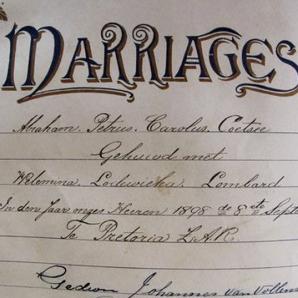 MARRIAGES
Abraham Petrus Carolus Coetsee
Gehuwd met
Welemina Lodewicka Lombard
In den Jaar onzes Heeren 1898 de 8ste Sept
Te Pretoria Z.A.R.
Gedeon Johannes van Vollens